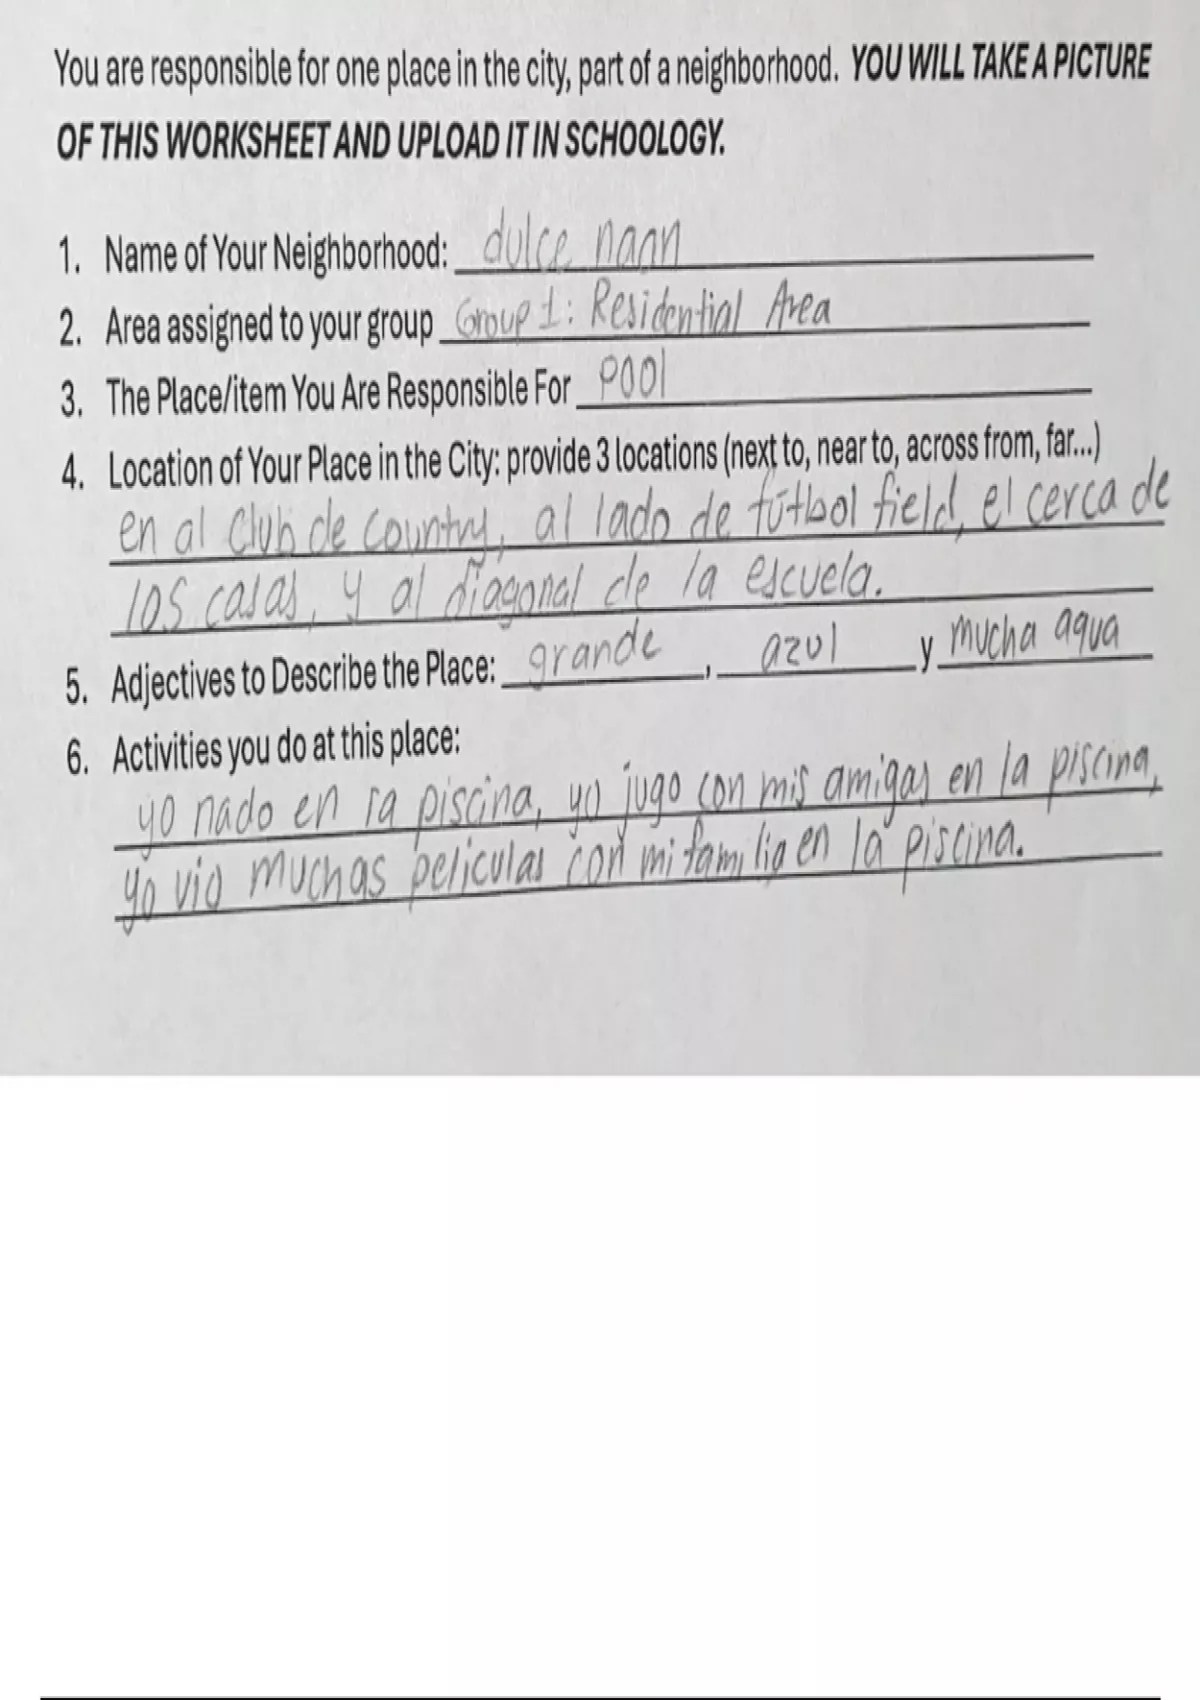 You are responsible for one place in the city, part of a neighborhood. YOU WILL TAKE A PICTURE
OF THIS WORKSHEET AND UPLOAD IT IN SCHOOLOGY.
1. Name of Your Neighborhood: dulce naan
2. Area assigned to your group Group 1: Residential Area
3. The Place/item You Are Responsible For Pool
4. Location of Your Place in the City: provide 3 locations (next to, near to, across from, far...)
en al Club de Country, al lado de fútbol field, el cerca de
los casas, y al diagonal de la escuela.
5. Adjectives to Describe the Place: grande, azul y mucha agua
6. Activities you do at this place:
yo nado en la piscina, yo jugo con mis amigas en la piscina,
yo vio muchas peliculas con mi familia en la piscina.